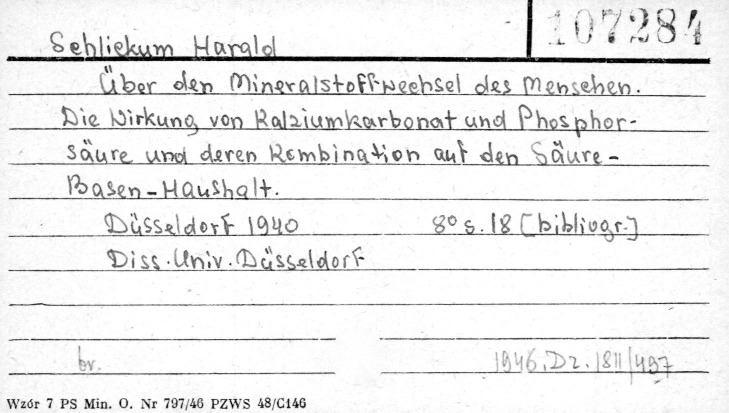 107284
Schlickum Harald
Über den Mineralstoffwechsel des Menschen.
Die Wirkung von Kalziumkarbonat und Phosphor-
säure und deren Kombination auf den Säure-
Basen-Haushalt.
Düsseldorf 1940 8° s. 18 [bibliogr.]
Diss. Univ. Düsseldorf
br. 1946. Dz. 1811/497
Wzór 7 PS Min. O. Nr 797/46 PZWS 48/C146